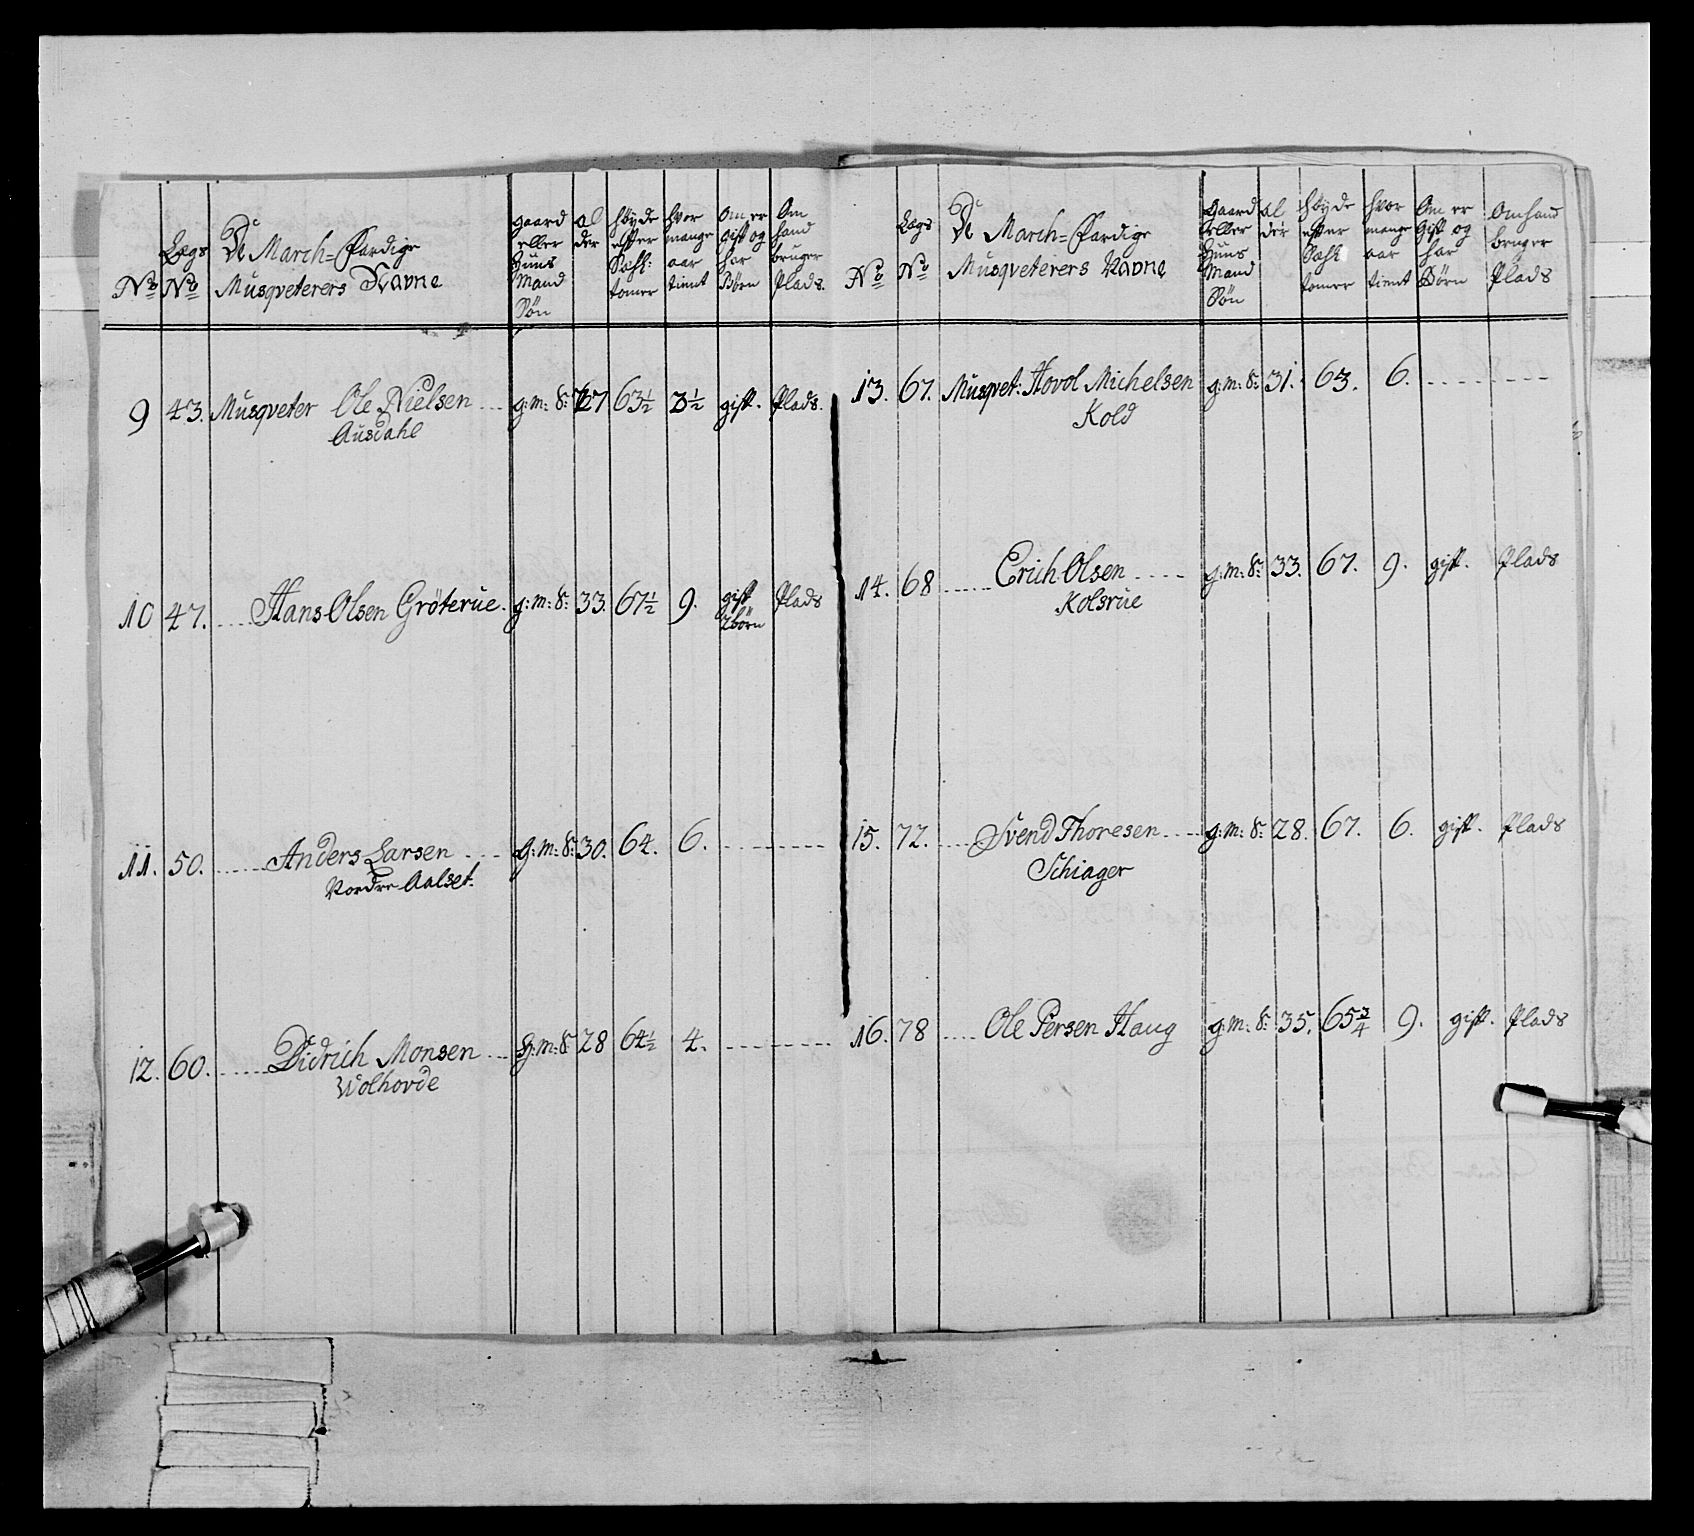 No Lægs No De March=Færdige Musqveterers Navne gaard eller Huus Mand Søn al der høyde effter Sahl: tomer hvor mange aar tient Om er gift og har Børn Om hand bruger Plads.
9 43. Musqveter Ole Nielsen g: m: S: 27 63½ 3½ gift. Plads.
Ausdahl
10 47. Hans Olsen Gröterue. g: m: S: 33. 67½ 9. gift Plads
2 börn
11. 50. Anders Larsen g: m: S: 30. 64. 6.
Nordre Aalset.
12. 60. Didrich Monsen g: m: S 28 64½ 4.
Wolhovde
No Lægs No De March=Færdige Musqveterers Navne Gaard eller Huus Mand Søn al der høyde effter Sahl tomer hvor mange aar tient Om er Gift og har Børn Om hand bruger Plads
13. 67. Musqvet: Hovol Michelsen g: m: S: 31. 63. 6.
Kold
14. 68 Erich Olsen g: m: S: 33. 67. 9. gift. Plads
Kolsrüe
15. 72. Svend Thoresen g: m: S: 28. 67. 6. gift. Plads
Schiager
16. 78 Ole Persen Haug g: m: S: 35. 65¾ 9. gift. Plads